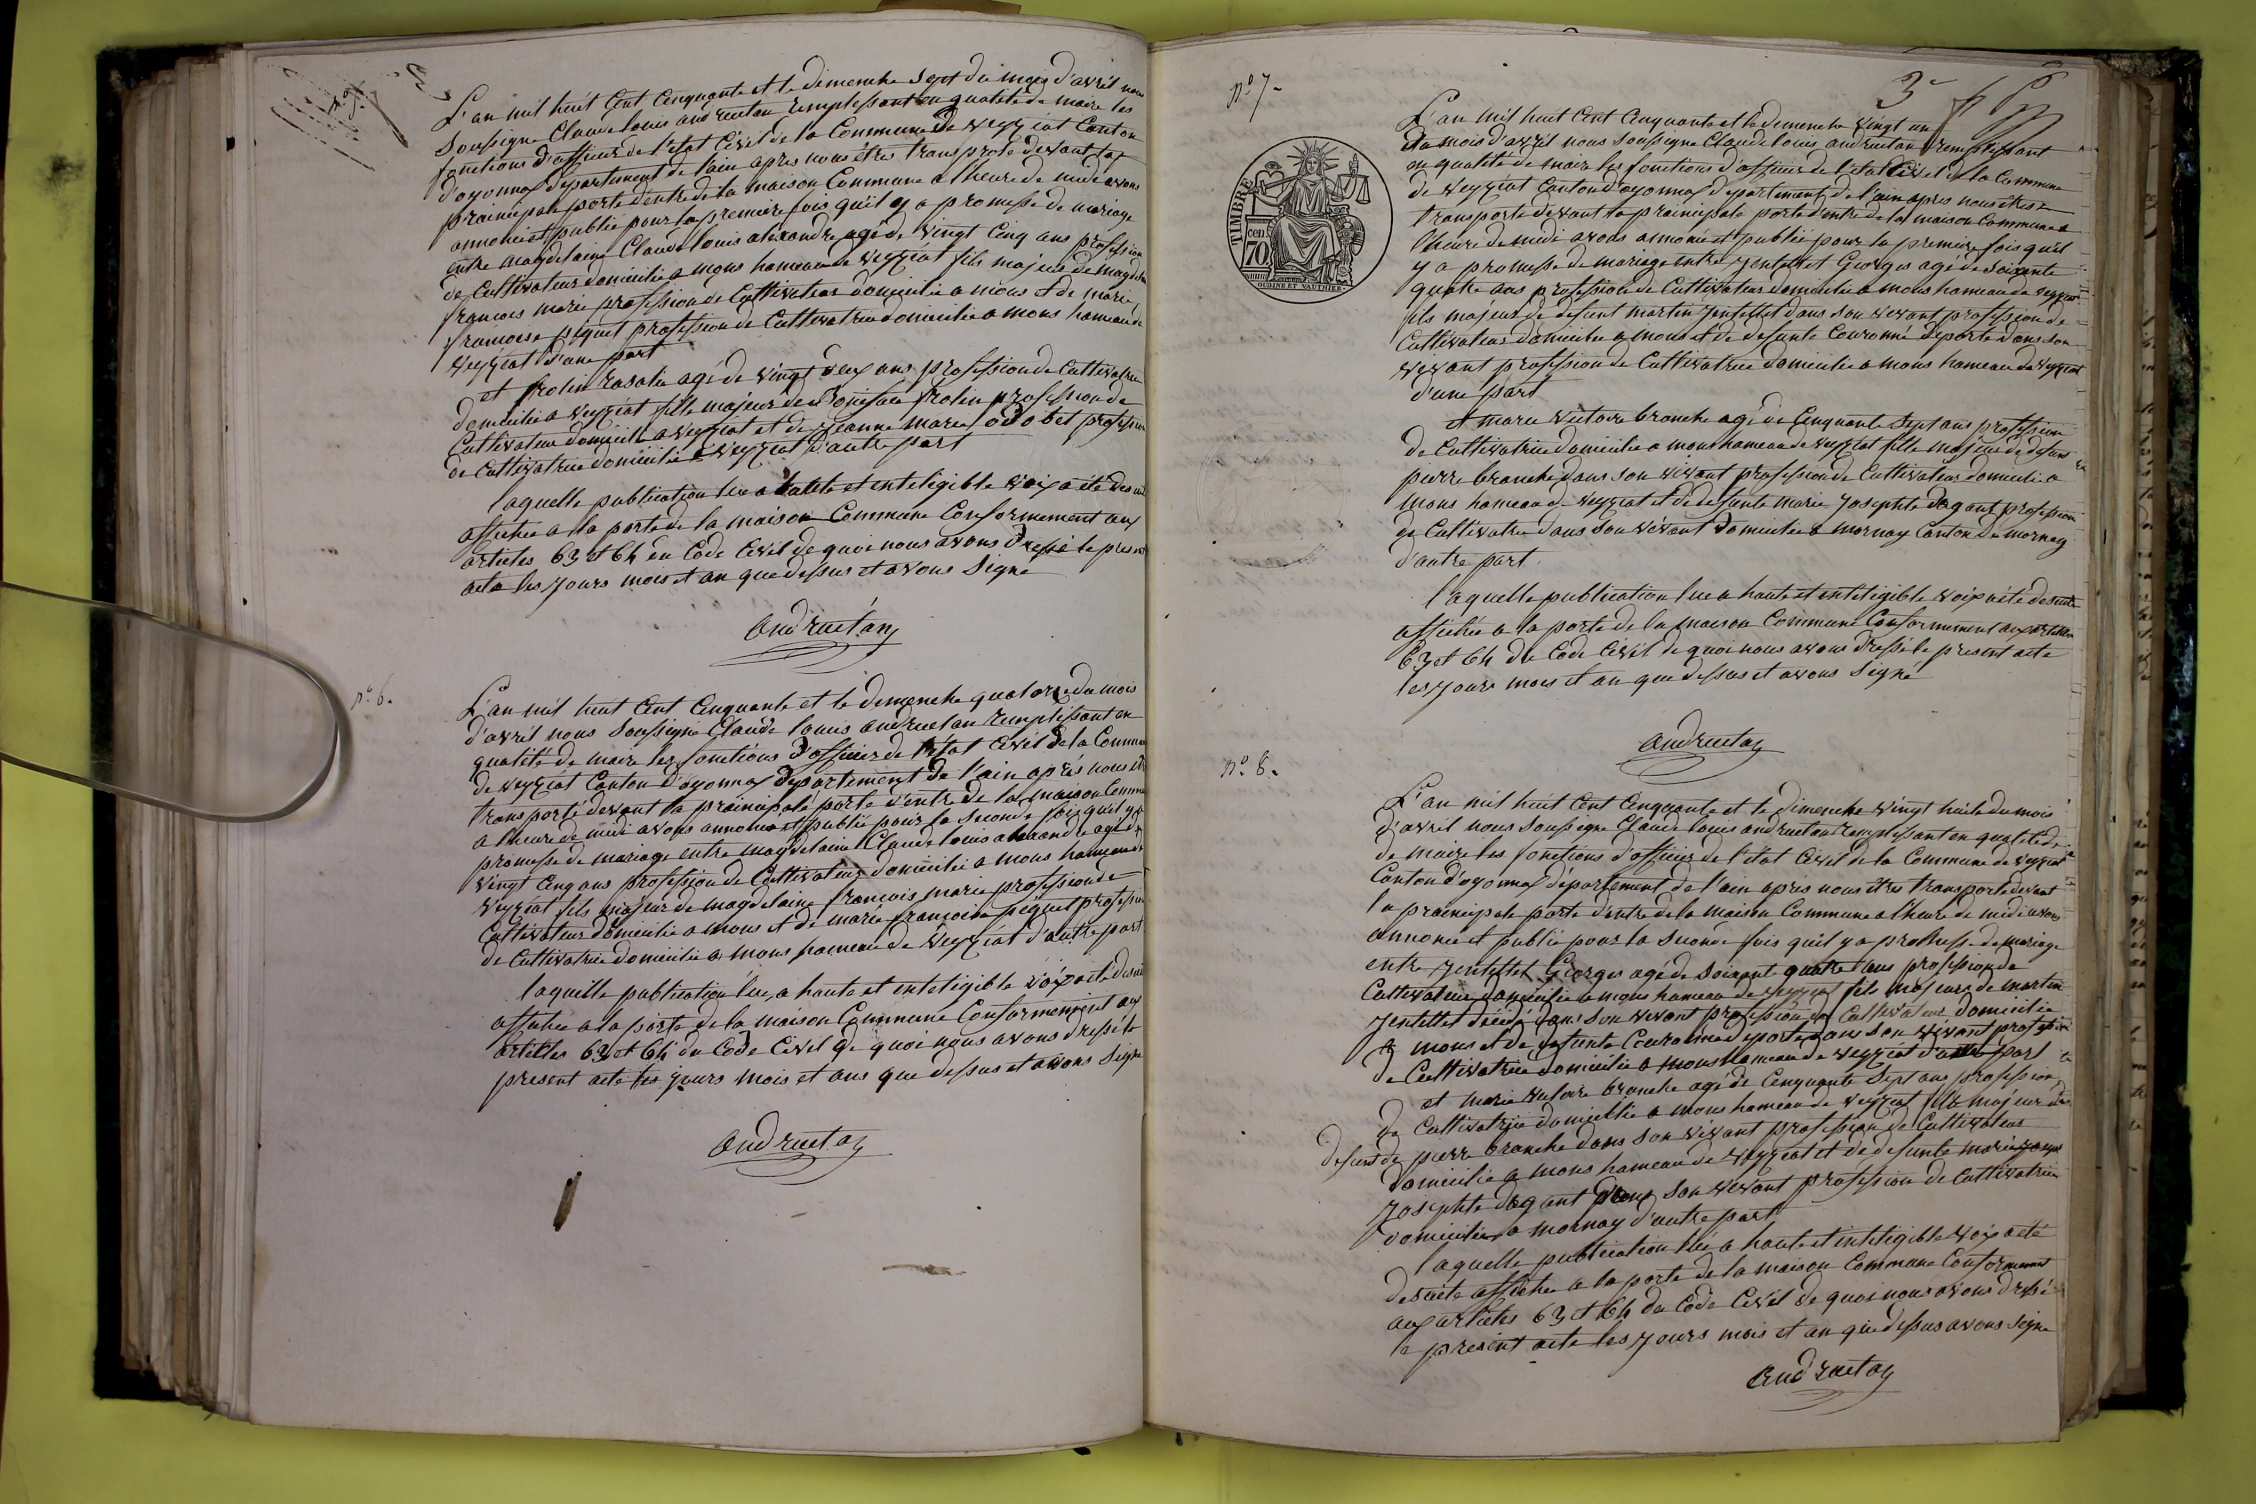 n° 5.
L'an mil huit Cent Cinquante et le dimenche Sept du mois d'avril nous
Soussigné Claude louis andruetan remplissant en qualité de maire les
fonctions d'officier de l'état Civil de la Commune de veyziat Canton
d'oyonnax département de l'ain apres nous êtres transporté devant la
prainipale porte d'entre de la maison Commune a l'heure de midi avons
annoncé et publié pour la premiere fois qu'il y a promesse de mariage
entre magdelaine Claude louis alexandre agé de vingt Cinq ans profession
de Cultivateur domicilié a mons hameau de veyziat fils majeur de magdelaine
françois marie profession de Cultivateur domicilié a mons et de marie
françoise piquet profession de Cultivatrice domiciliée a mons hameau de
veyziat d'une part
et frolin rosalie agé de vingt deux ans profession de Cultivatrice
domicilié a veyziat fille majeur de Boniface frolin profession de
Cultivateur domicilié a veyziat et de jeanne marie odobet profession
de Cultivatrice domiciliée a veyziat d'autre part
laquelle publication lue a haute et inteligible voix a été de suite
affichée a la porte de la maison Commune Conformement aux
articles 63 et 64 du Code Civil de quoi nous avons dressé le present
acte les jours mois et an que dessus et avons Signé
Andruetan
n° 6.
L'an mil huit Cent Cinquante et le dimenche quatorze du mois
d'avril nous Soussigné Claude louis andruetan remplissant en
qualité de maire les fonctions d'officier de l'état Civil de la Commune
de veyziat Canton d'oyonnax département de l'ain aprés nous êtres
transporté devant la prainipale porte d'entre de la maison Commune
a l'heure de midi avons annoncé et publié pour la seconde fois qu'il y a
promesse de mariage entre magdelaine Claude louis alexandre agé de
vingt Cinq ans profession de Cultivateur domicilié a mons hameau de
veyziat fils majeur de magdelaine françois marie profession de
Cultivateur domicilié a mons et de marie françoise piquet profession
de Cultivatrice domiciliée a mons hameau de veyziat d'autre part
laquelle publication lue a haute et inteligible voix a été de suite
affichée a la porte de la maison Commune Conformement aux
articles 63 et 64 du Code Civil de quoi nous avons dressé le
present acte les jours mois et ans que dessus et avons Signé
Andruetan
3e
n° 7.
TIMBRE
cen
70
OUDINÉ ET VAUTHIER
L'an mil huit Cent Cinquante et le dimenche vingt un
du mois d'avril nous soussigné Claude louis andruetan remplissant
en qualité de maire les fonctions d'officier de l'état Civil de la Commune
de veyziat Canton d'oyonnax département de l'ain apres nous êtres
transporté devant la prainipale porte d'entre de la maison Commune a
l'heure de midi avons annoncé et publié pour la premiere fois qu'il
y a promesse de mariage entre jentellet Georges agé de soixante
quatre ans profession de Cultivateur domicilié a mons hameau de veyziat
fils majeur de defunt martin jentellet dans son vivant profession de
Cultivateur domicilié a mons et de defunte Couronné deporte dans son
vivant profession de Cultivatrice domiciliée a mons hameau de veyziat
d'une part
et marie victoire branche agé de Cinquante Sept ans profession
de Cultivatrice domiciliée a mons hameau de veyziat fille majeur de defunt
pierre branche dans son vivant profession de Cultivateur domicilié a
mons hameau de veyziat et de defunte marie josephte dagant profession
de Cultivatrice dans son vivant domiciliée a mornay Canton de mornay
d'autre part.
laquelle publication lue a haute et inteligible voix a été de suite
affichée a la porte de la maison Commune Conformement aux articles
63 et 64 du Code Civil de quoi nous avons dressé le present acte
les jours mois et an que dessus et avons Signé
Andruetan
n° 8.
L'an mil huit Cent Cinquante et le dimenche vingt huite du mois
d'avril nous soussigné Claude louis andruetan remplissant en qualité de
de maire les fonctions d'officier de l'état Civil de la Commune de veyziat
Canton d'oyonnax département de l'ain apres nous êtres transporté devant
la prainipale porte d'entre de la maison Commune a l'heure de midi avons
annoncé et publié pour la seconde fois qu'il y a promesse de mariage
entre jentellet Georges agé de soixante quatre ans profession de
Cultivateur domicilié a mons hameau de veyziat fils majeur de martin
jentellet décédé dans son vivant profession de Cultivateur domicilié
a mons et de defunte Couronné deporte dans son vivant profession
de Cultivatrice domiciliée a mons hameau de veyziat d'une part
et marie victoire branche agé de Cinquante Sept ans profession
de Cultivatrice domiciliée a mons hameau de veyziat fille majeur
defunt de pierre branche dans son vivant profession de Cultivateur
domicilié a mons hameau de veyziat et de defunte marie
josephte dagant dans son vivant profession de Cultivatrice
domiciliée a mornay d'autre part
laquelle publication lue a haute et inteligible voix a été
de suite affichée a la porte de la maison Commune Conformement
aux articles 63 et 64 du Code Civil de quoi nous avons dressé
le present acte les jours mois et an que dessus avons signé
Andruetan